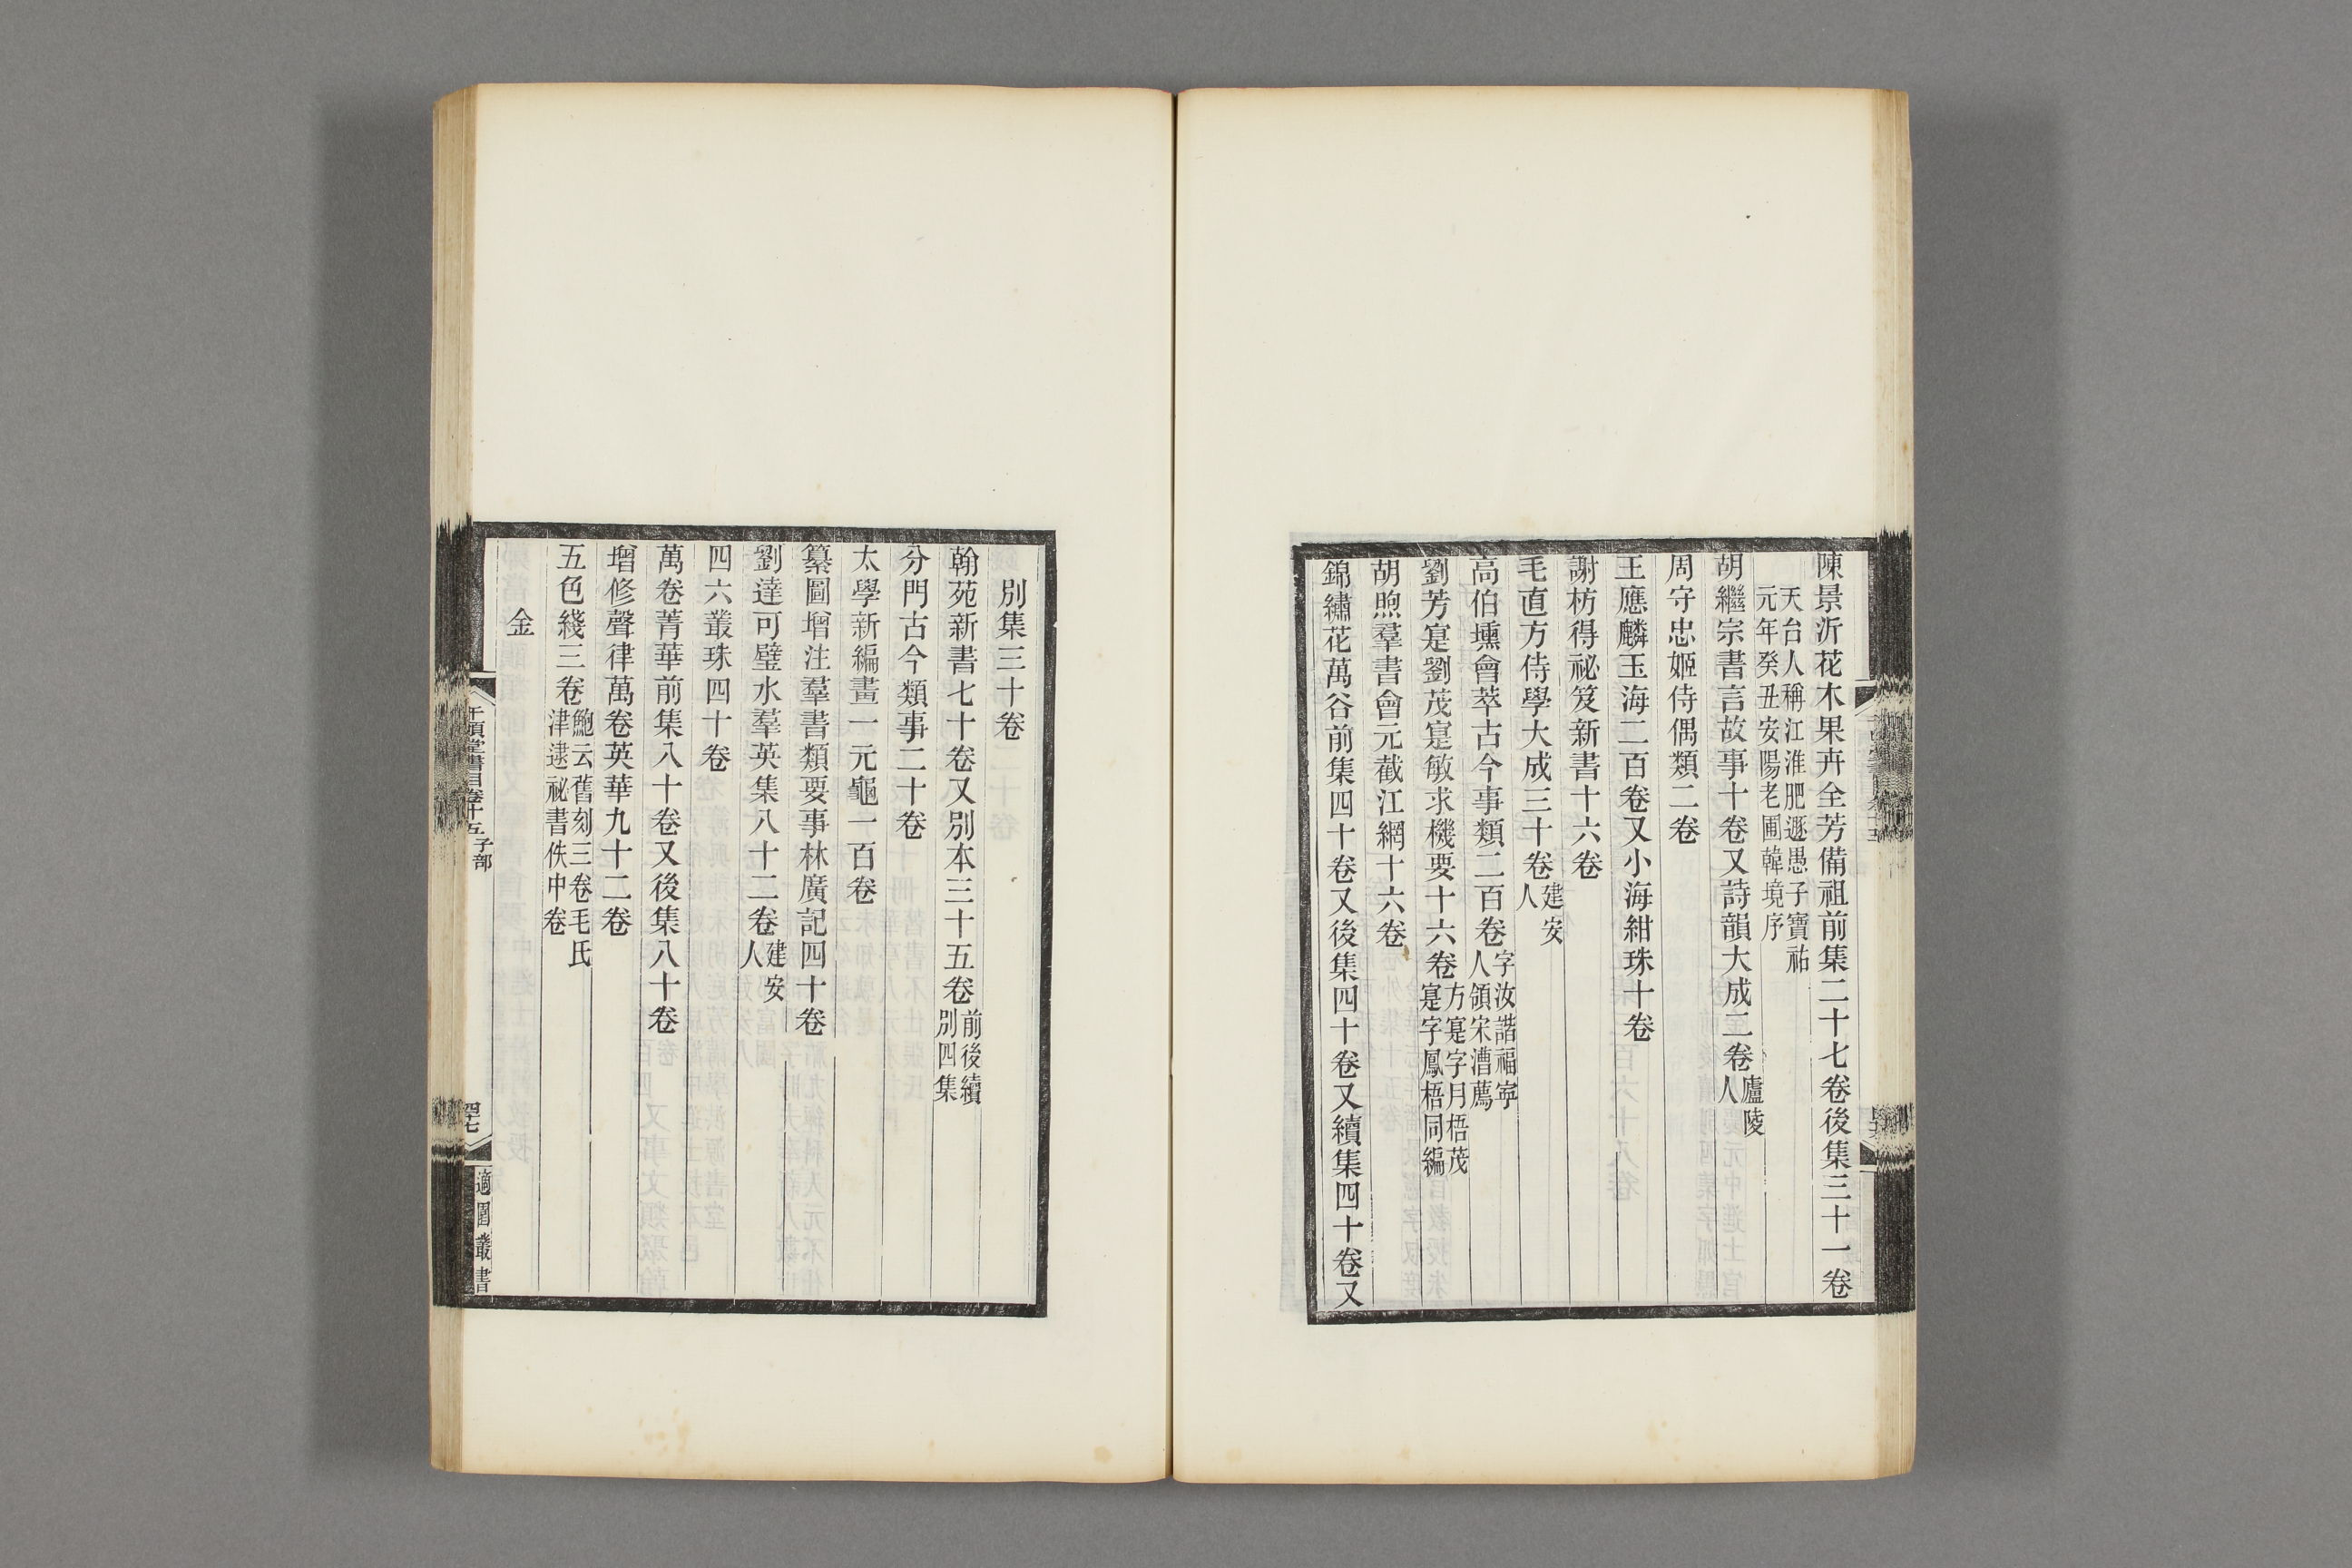 陳景沂花木果卉全芳備祖前集二十七卷後集三十一卷
天台人稱江淮肥遯愚子寶祐
元年癸丑安陽老圃韓境序
胡繼宗書言故事十卷又詩韻大成二卷廬陵人
周守忠姬侍偶類二卷
王應麟玉海二百卷又小海紺珠十卷
謝枋得祕笈新書十六卷
毛直方侍學大成三十卷建安人
高伯壎會萃古今事類二百卷字汝諧福寧人領宋漕薦
劉芳寔劉茂寔敏求機要十六卷方寔字月梧茂寔字鳳梧同編
胡煦羣書會元截江網十六卷
錦繡花萬谷前集四十卷又後集四十卷又續集四十卷又
別集三十卷
翰苑新書七十卷又別本三十五卷前後續別四集
分門古今類事二十卷
太學新編畫一元龜一百卷
纂圖增注羣書類要事林廣記四十卷
劉達可璧水羣英集八十二卷建安人
四六叢珠四十卷
萬卷菁華前集八十卷又後集八十卷
增修聲律萬卷英華九十二卷
五色綫三卷鮑云舊刻三卷毛氏津逮祕書佚中卷
金
千頃堂書目卷十五 子部
四十七
適園叢書